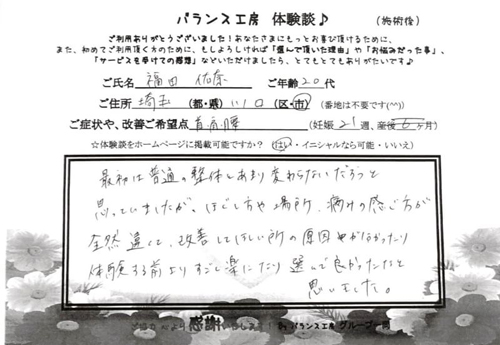 バランス工房 体験談♪ (施術後)
ご利用ありがとうございました！あなたさまにもっとお喜び頂けるために、
また、初めてご利用頂く方のために、もしよろしければ「選んで頂いた理由」や「お悩みだった事」、
「サービスを受けての感想」などいただけましたら、とてもとてもありがたいです♪
ご氏名 福田 佑奈 ご年齢 20代
ご住所 埼玉 (都・県) 川口 (区・市) (番地は不要です(^^))
ご症状や、改善ご希望点 首 肩 腰 (妊娠 21 週、産後 6ヶ月)
☆体験談をホームページに掲載可能ですか？ (はい・イニシャルなら可能・いいえ)
最初は普通の整体しあまり変わらないだろうと
思っていましたが、ほぐし方や場所、痛みの感じ方が
全然違くて、改善してほしい所の原因
体験する前よりすごし楽になり選んで良かったなと
思いました。
感謝いたします！ By バランス工房 グループ一同